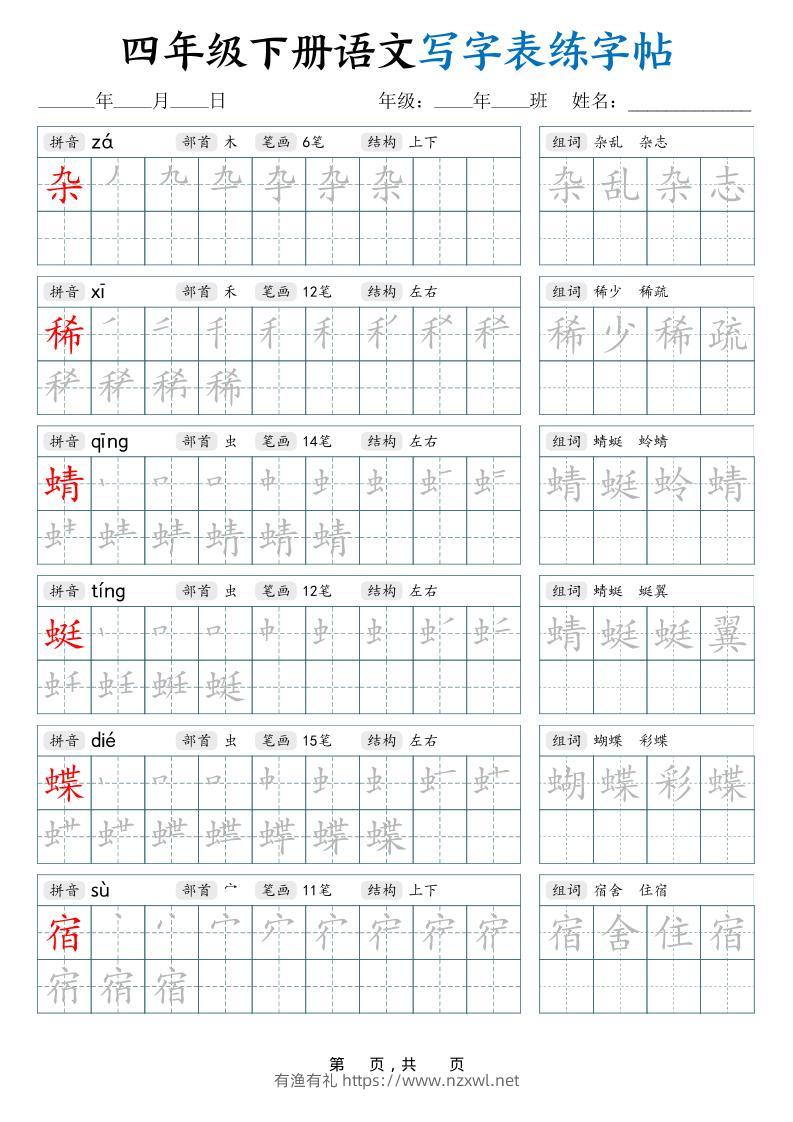 四年级下册语文写字表练字帖
______年____月____日 年级：____年____班 姓名：____________
拼音 zá 部首 木 笔画 6笔 结构 上下 组词 杂乱 杂志
杂 杂 杂乱杂志
拼音 xī 部首 禾 笔画 12笔 结构 左右 组词 稀少 稀疏
稀 稀少稀疏
稀
拼音 qīng 部首 虫 笔画 14笔 结构 左右 组词 蜻蜓 蛉蜻
蜻 蜻蜓蛉蜻
蜻
拼音 tíng 部首 虫 笔画 12笔 结构 左右 组词 蜻蜓 蜓翼
蜓 蜻蜓蜓翼
蜓
拼音 dié 部首 虫 笔画 15笔 结构 左右 组词 蝴蝶 彩蝶
蝶 蝴蝶彩蝶
蝶
拼音 sù 部首 宀 笔画 11笔 结构 上下 组词 宿舍 住宿
宿 宿舍住宿
宿
第 页，共 页
有渔有礼 https://www.nzxwl.net